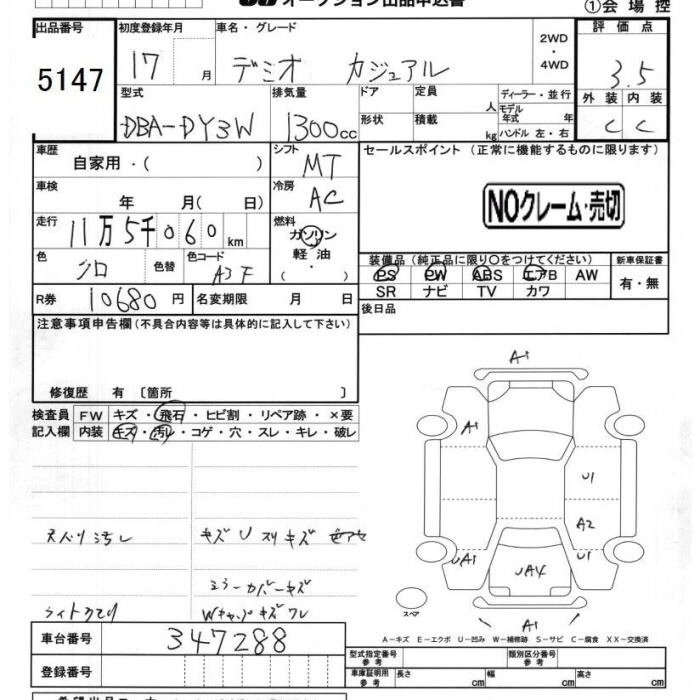 オークション出品申込書
①会場控
出品番号
5147
初度登録年月
17 月
車名・グレード
デミオ カジュアル
2WD
・
4WD
評価点
3.5
外装 内装
C C
型式
DBA-DY3W
排気量
1300cc
ドア
形状
定員 人
積載 kg
ディーラー・並行
モデル年式 年
ハンドル 左・右
車歴
自家用・( )
シフト
MT
セールスポイント(正常に機能するものに限ります)
NOクレーム・売切
車検
年 月( 日)
冷房
AC
走行
11万5千060km
燃料
ガソリン
軽油
・( )
色
シロ
色替
色コード
A3F
装備品(純正品に限り○をつけてください)
PS PW ABS エアB AW
SR ナビ TV カワ
新車保証書
有・無
R券 10680円
名変期限 月 日
後日品
注意事項申告欄(不具合内容等は具体的に記入して下さい)
修復歴 有 〔箇所 〕
検査員
記入欄
FW キズ・飛石・ヒビ割・リペア跡・×要
内装 キズ・汚れ・コゲ・穴・スレ・キレ・破レ
天バリ汚レ
キズU スリキズ
ミラーカバーキズ
ライトクモリ
Wキャップキズ ワレ
A1
A1
U1
A2
UA1
UA4
U1
A1
スペア
A-キズ E-エクボ U-凹み W-補修跡 S-サビ C-腐食 XX-交換済
車台番号 347288
登録番号
型式指定番号
参考
類別区分番号
参考
車庫証明用
参考
長さ cm
幅 cm
高さ cm